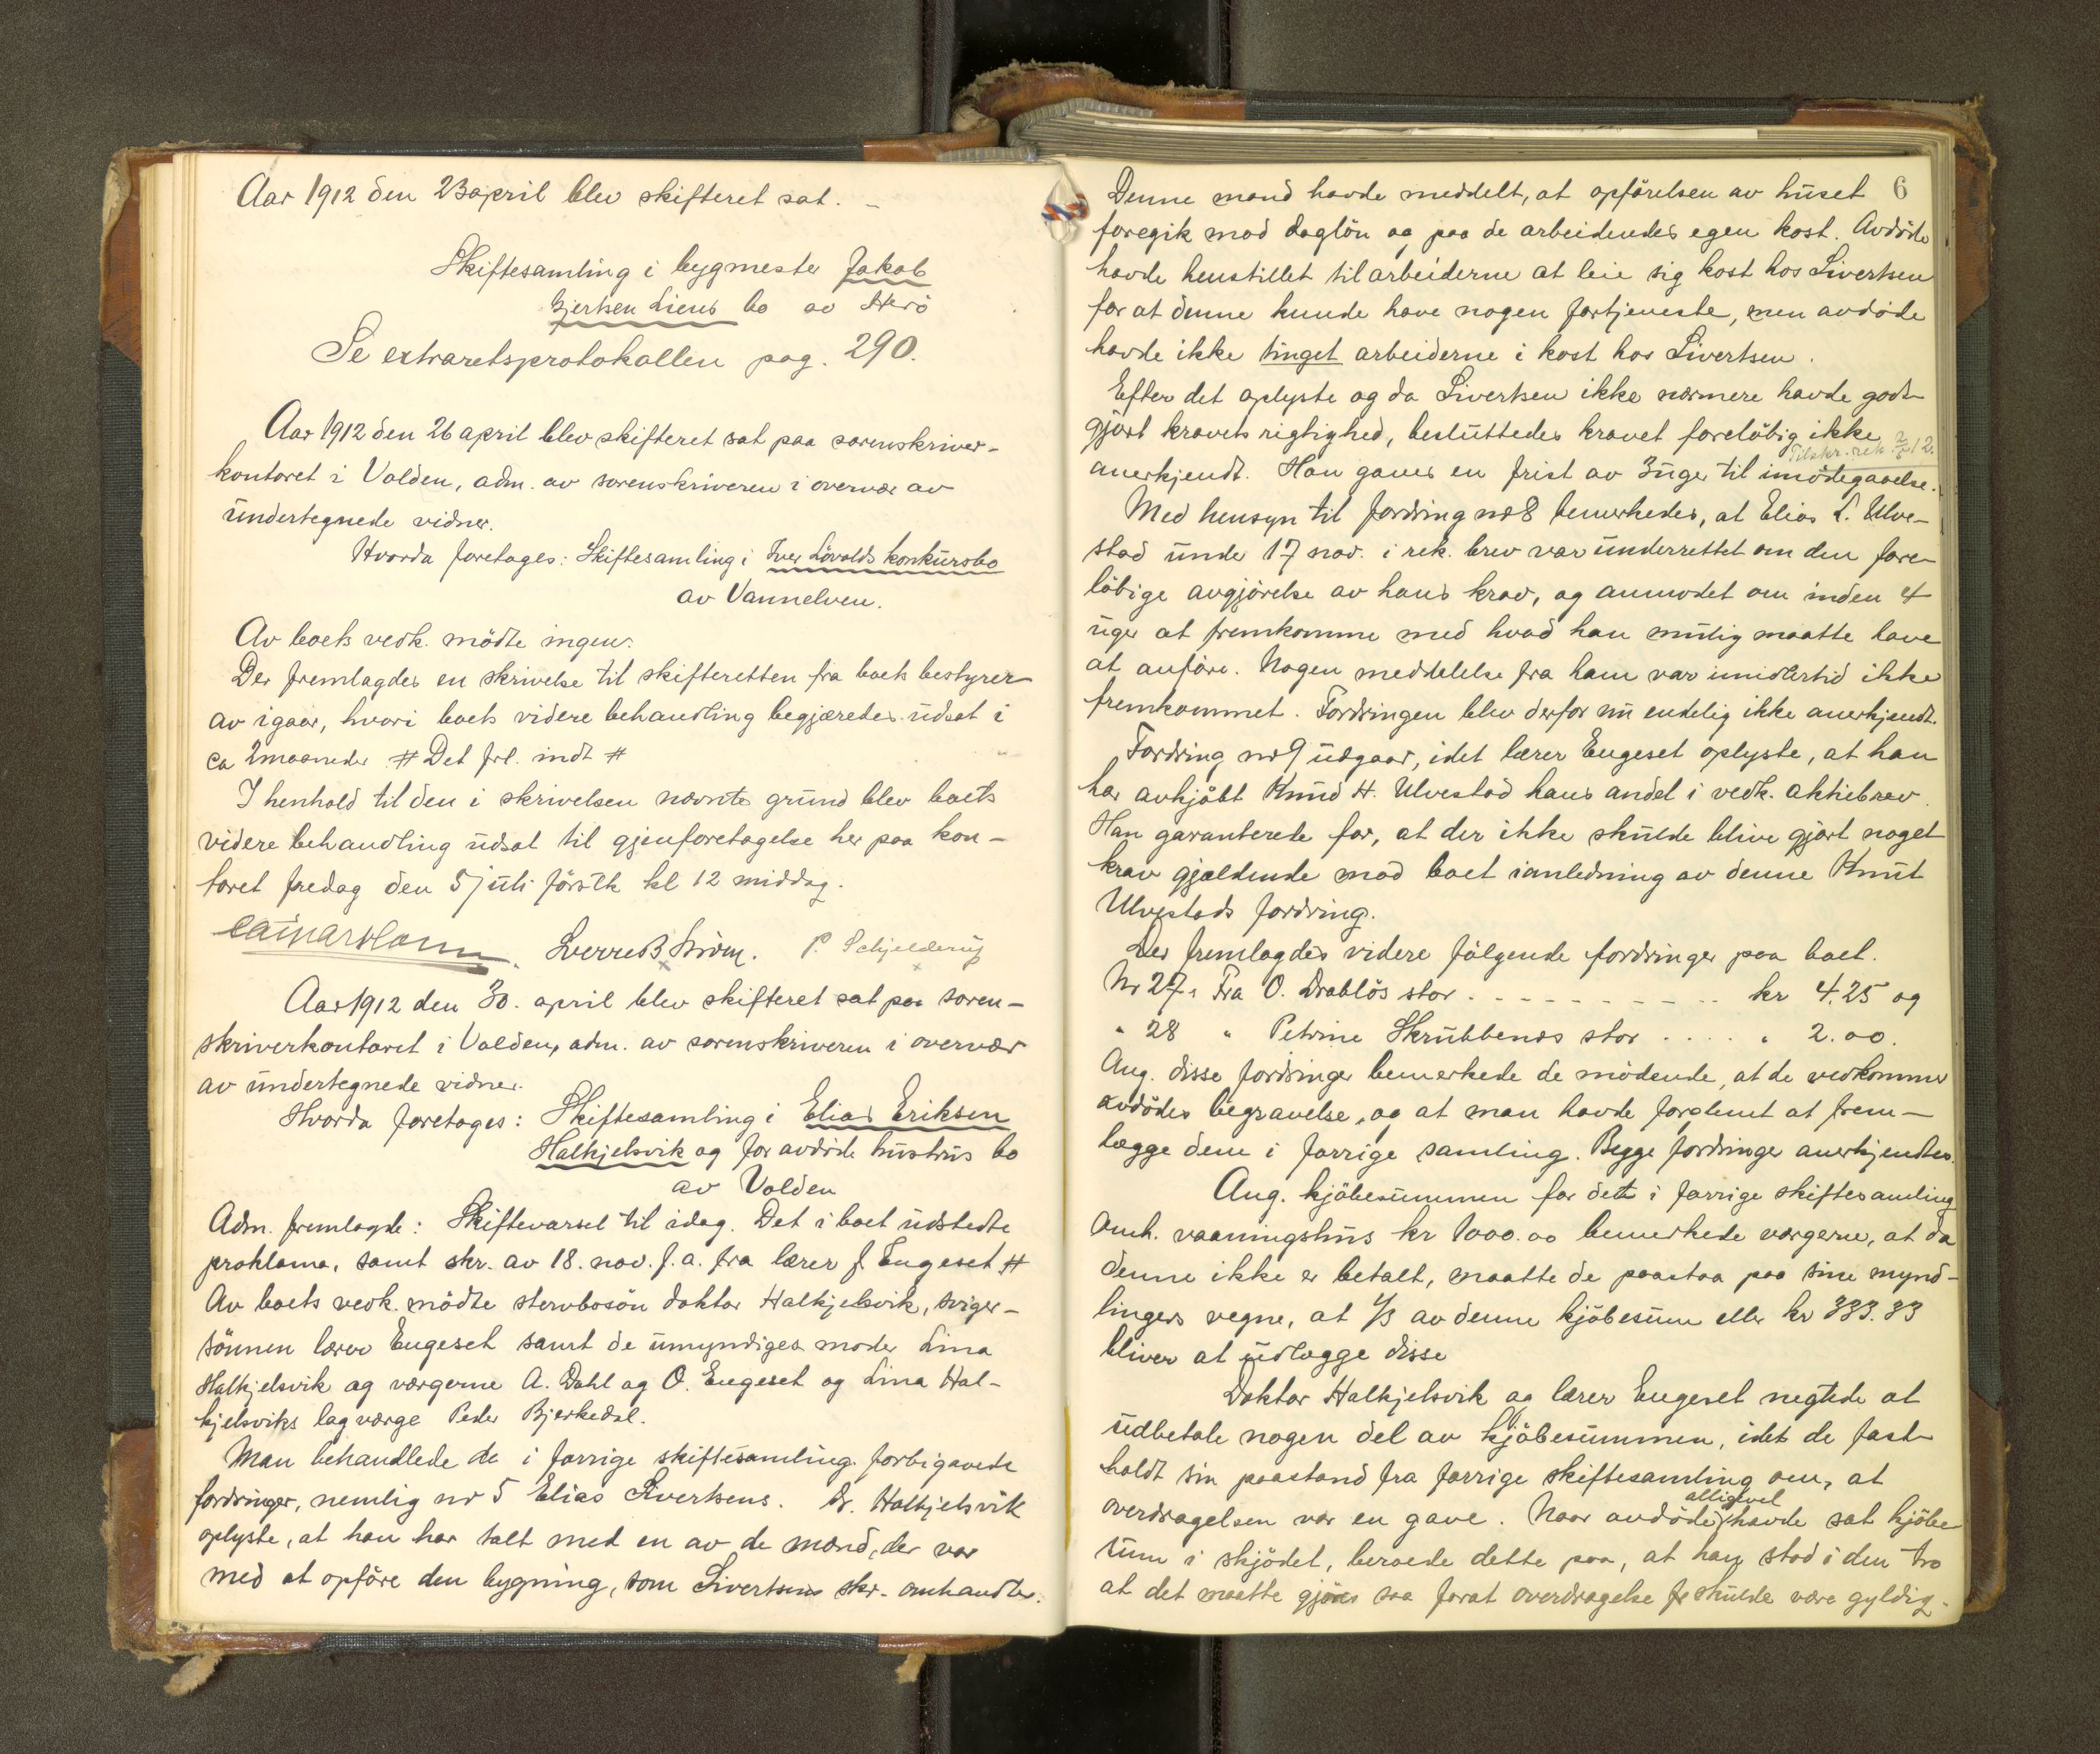 Aar 1912 den 23 april blev skifteret sat. –
Skiftesamling i bygmester Jakob
Gjertsen Liens bo av Herö
Se extraretsprotokollen pag. 290.
Aar 1912 den 26 april blev skifteret sat paa sorenskriver-
kontoret i Volden, adm. av sorenskriveren i overvær av
undertegnede vidner.
Hvorda foretages: Skiftesamling i Iver Lövolds konkursbo
av Vannelven.
Av boets vedk. mödte ingen.
Der fremlagdes en skrivelse til skifteretten fra boets bestyrer
av igaar, hvori boets videre behandling begjæredes udsat i
ca 2 maaneder # Det frl. indt #
I henhold til den i skrivelsen nævnte grund blev boets
videre behandling udsat til gjenforetagelse her paa kon-
toret fredag den 5 juli förstk kl 12 middag.
Sverre B Ström. P. Schjelderup
Aar 1912 den 30. april blev skifteret sat paa soren-
skriverkontoret i Volden, adm. av sorenskriveren i overvær
av undertegnede vidner.
Hvorda foretages: Skiftesamling i Elias Eriksen
Halkjelsvik og for avdöde hustrus bo
av Volden
Adm. fremlagde: Skiftevarsel til idag. Det i boet udstedte
proklama, samt skr. av 18. nov. f. a. fra lærer J. Engeset #
Av boets vedk. mödte stervbosön doktor Halkjelsvik, sviger-
sönnen lærer Engeset samt de umyndiges moder Lina
Halkjelsvik og værgerne A. Dahl og O. Engeset og Lina Hal-
kjelsviks lagværge Peder Bjerkedal.
Man behandlede de i forrige skiftesamling forbigaaede
fordringer, nemlig nr 5 Elias Sivertsens. Dr. Halkjelsvik
oplyste, at han har talt med en av de mænd, der var
med at opföre den bygning, som Sivertsens skr. omhandler.
6
Denne mand havde meddelt, at opförelsen av huset
foregik mod daglön og paa de arbeidendes egen kost. Avdöde
havde henstillet til arbeiderne at leie sig kost hos Sivertsen
for at denne kunde have nogen fortjeneste, men avdöde
havde ikke tinget arbeiderne i kost hos Sivertsen.
Efter det oplyste og da Sivertsen ikke nærmere havde godt-
gjort kravets rigtighed, besluttedes kravet forelöbig ikke
Tilskr. rek.
anerkjendt. Han gaves en frist av 3 uger til imödegaaelse.
Med hensyn til fordring nr 8 bemerkedes, at Elias L. Ulve-
stad under 17 nov. i rek. brev var underrettet om den fore-
löbige avgjörelse av hans krav, og anmodet om inden 4
uger at fremkomme med hvad han mulig maatte have
at anföre. Nogen meddelelse fra ham var imidlertid ikke
fremkommet. Fordringen blev derfor nu endelig ikke anerkjendt.
Fordring nr 9 udgaar, idet lærer Engeset oplyste, at han
har avkjöbt Knud H. Ulvestad hans andel i vedk. aktiebrev.
Han garanterede for, at der ikke skulde blive gjort noget
krav gjældende mod boet i anledning av denne Knut
Ulvestads fordring.
Der fremlagdes videre fölgende fordringer paa boet.
Nr 27. Fra O. Drablös stor . . . . . . . . . . kr 4.25 og
" 28 " Petrine Skrubbenæs stor . . . . " 2.00.
Ang. disse fordringer bemerkede de mödende, at de vedkommer
avdödes begravelse, og at man havde forglemt at frem-
lægge dem i forrige samling. Begge fordringer anerkjendtes.
Ang. kjöbesummen for det i forrige skiftesamling
omh. vaaningshus kr 1000.00 bemerkede værgerne, at da
denne ikke er betalt, maatte de paastaa paa sine mynd-
lingers vegne, at 1/3 av denne kjöbesum eller kr 333.33
bliver at udlægge disse
Doktor Halkjelsvik og lærer Engeset negtede at
udbetale nogen del av kjöbesummen, idet de fast-
holdt sin paastand fra forrige skiftesamling om, at
alligevel
overdragelsen var en gave. Naar avdöde havde sat kjöbe-
sum i skjödet, beroede dette paa, at han stod i den tro
at det maatte gjöres saa forat overdragelse skulde være gyldig.